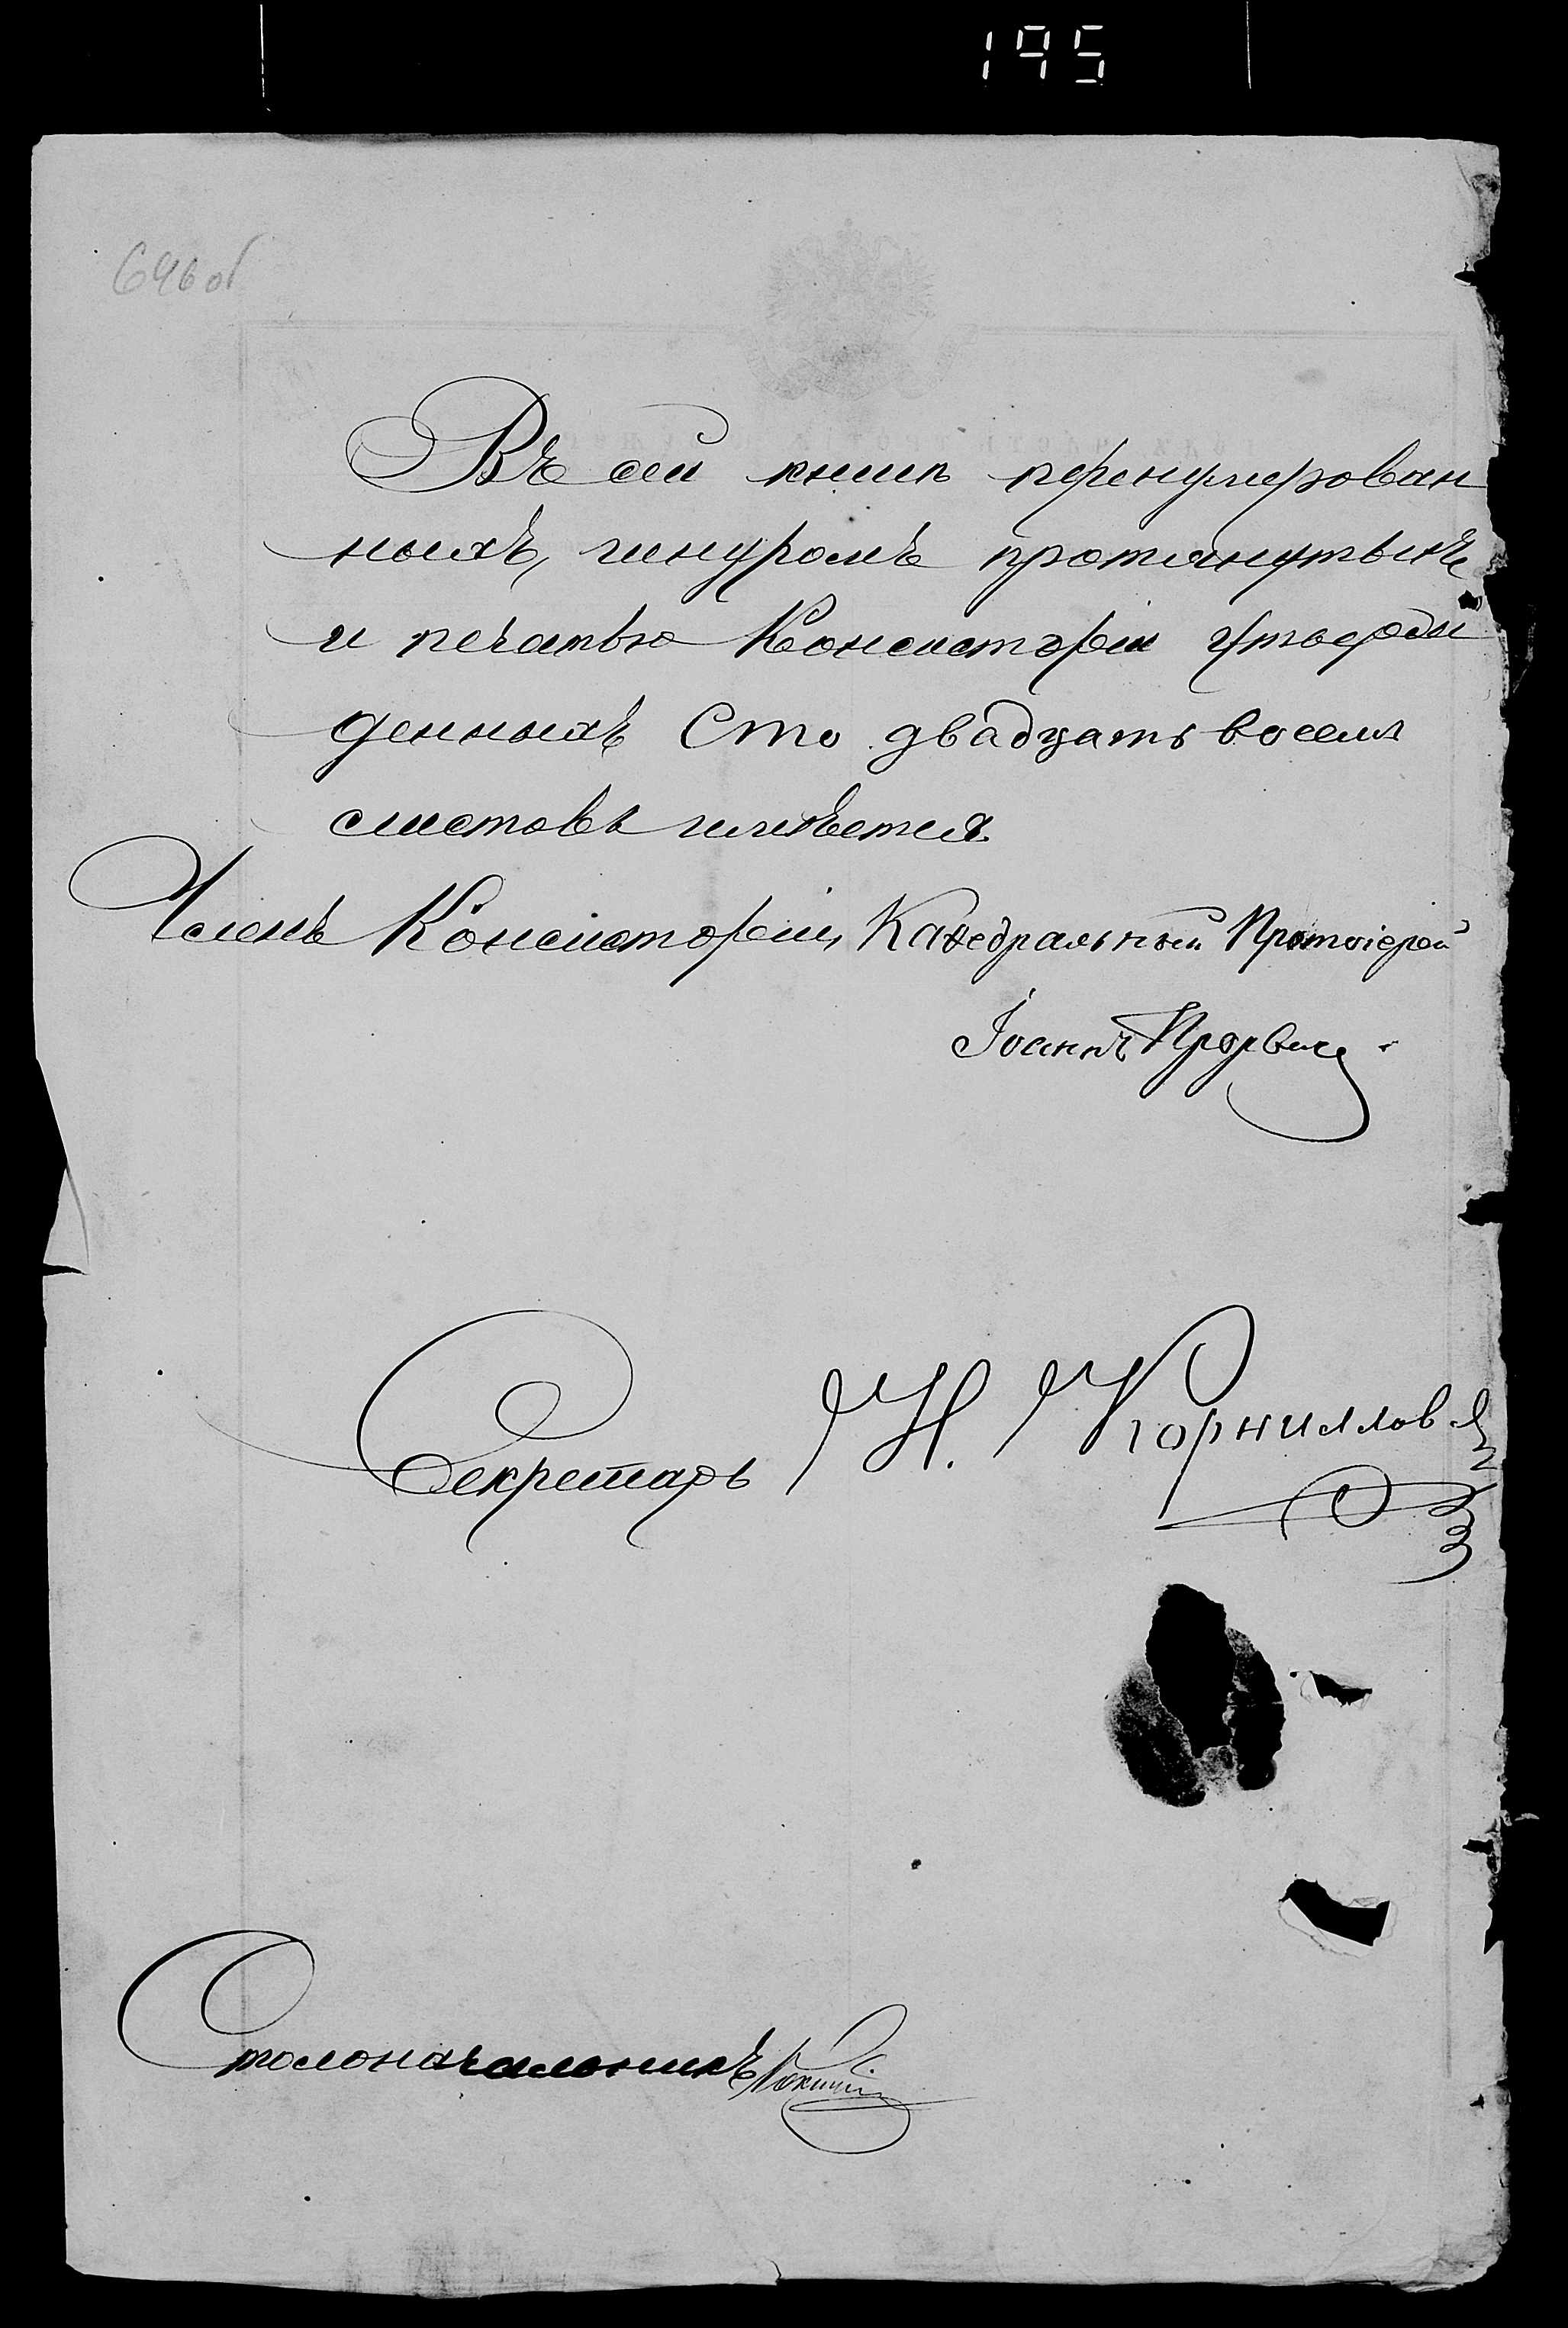 195
696 об
Въ сей книгѣ перенумерован
ныхъ, шнуромъ протянутыхъ
и печатью Консисторіи утверж
денныхъ Сто двадцать восемь
листовъ имѣется.
Членъ Консисторіи, Каѳедральный Протоіерей
Іоаннъ
Секретарь Н. Корниллов
Столоначальникъ